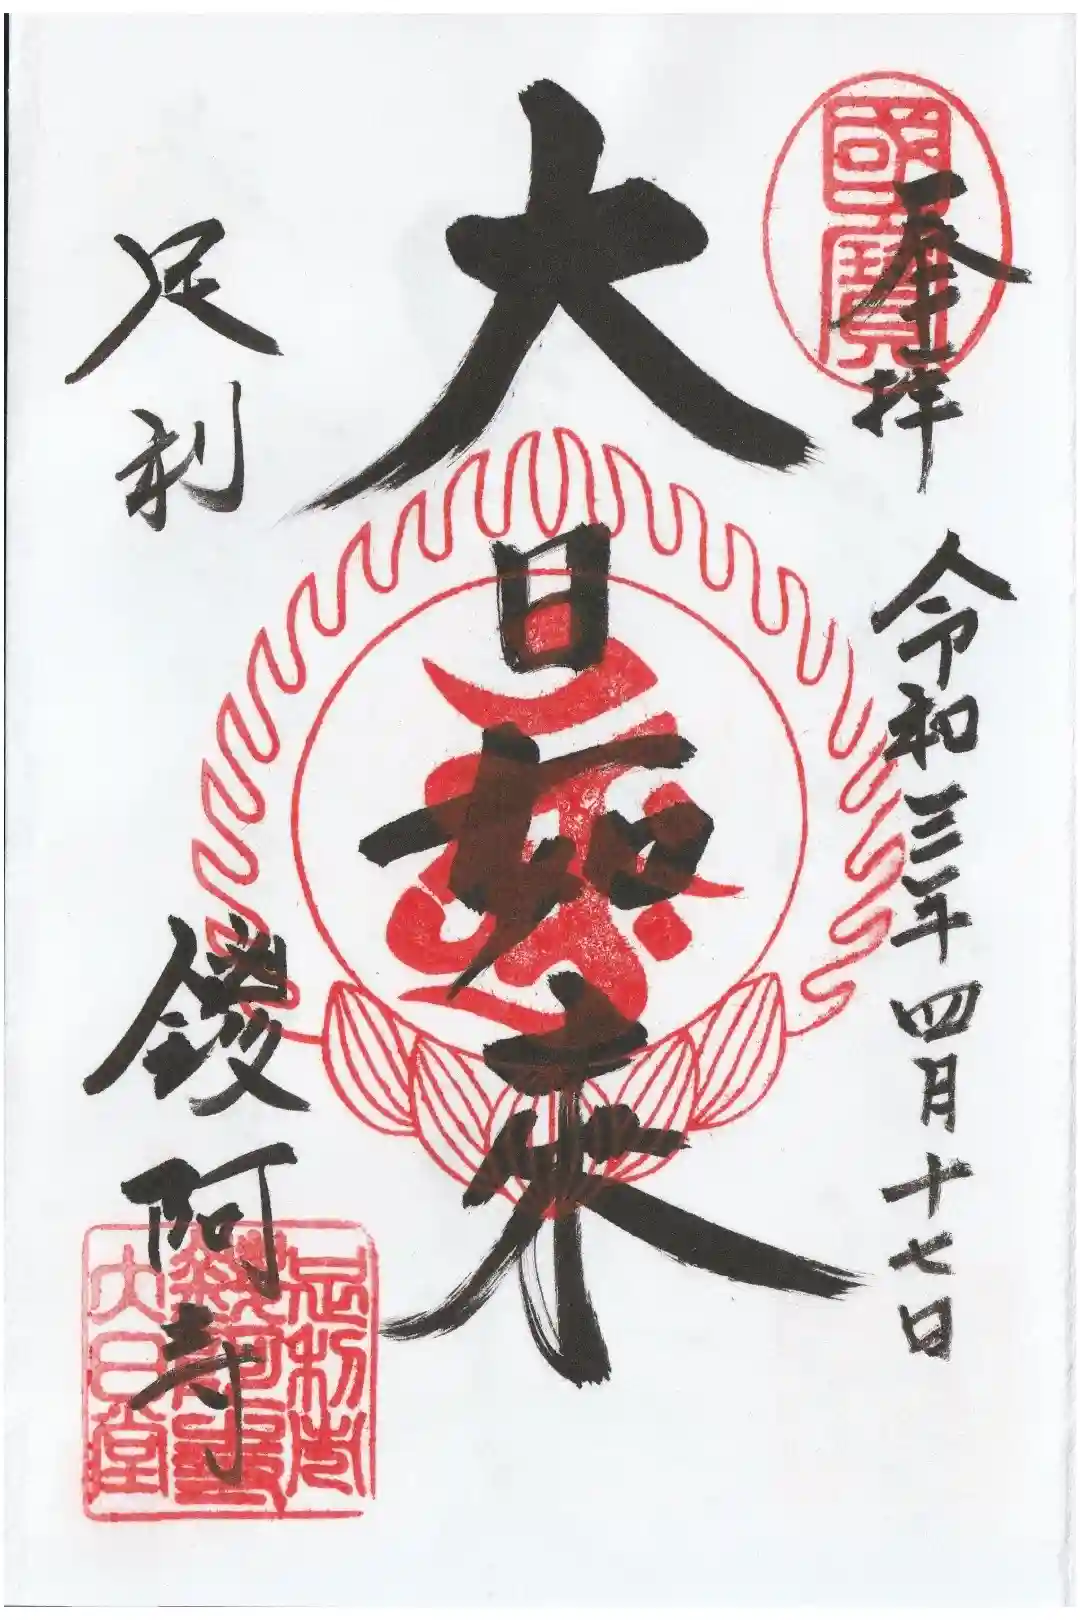 國寶
奉拝
令和三年四月十七日
大日如来
足利
鑁阿寺
足利市
鑁阿寺
大日堂